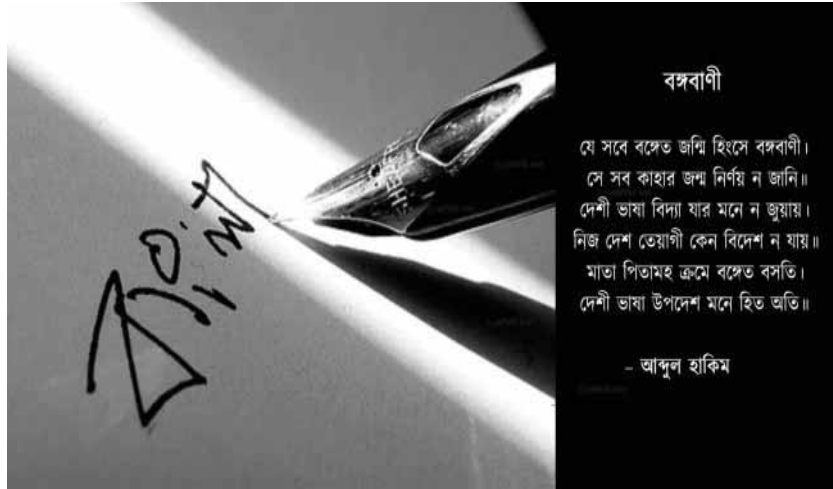 বঙ্গবাণী
যে সবে বঙ্গেত জন্মি হিংসে বঙ্গবাণী।
সে সব কাহার জন্ম নির্ণয় ন জানি॥
দেশী ভাষা বিদ্যা যার মনে ন জুয়ায়।
নিজ দেশ তেয়াগী কেন বিদেশ ন যায়॥
মাতা পিতামহ ক্রমে বঙ্গেত বসতি।
দেশী ভাষা উপদেশ মনে হিত অতি॥
- আব্দুল হাকিম